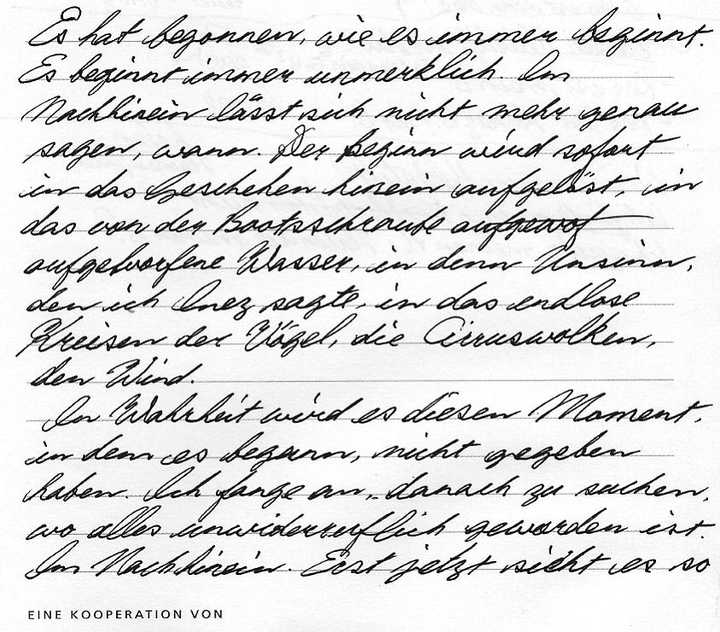 Es hat begonnen, wie es immer beginnt.
Es beginnt immer unmerklich. Im
Nachhinein lässt sich nicht mehr genau
sagen, wann. Der Beginn wird sofort
in das Geschehen hinein aufgelöst, in
das von der Bootsschraube aufgewof
aufgeworfene Wasser, in denn Unsinn,
den ich Inez sagte, in das endlose
Kreisen der Vögel, die Cirruswolken,
den Wind.
In Wahrheit wird es diesen Moment,
in dem es begann, nicht gegeben
haben. Ich fange an, danach zu suchen,
wo alles unwiderruflich geworden ist.
Im Nachhinein. Erst jetzt sieht es so
EINE KOOPERATION VON